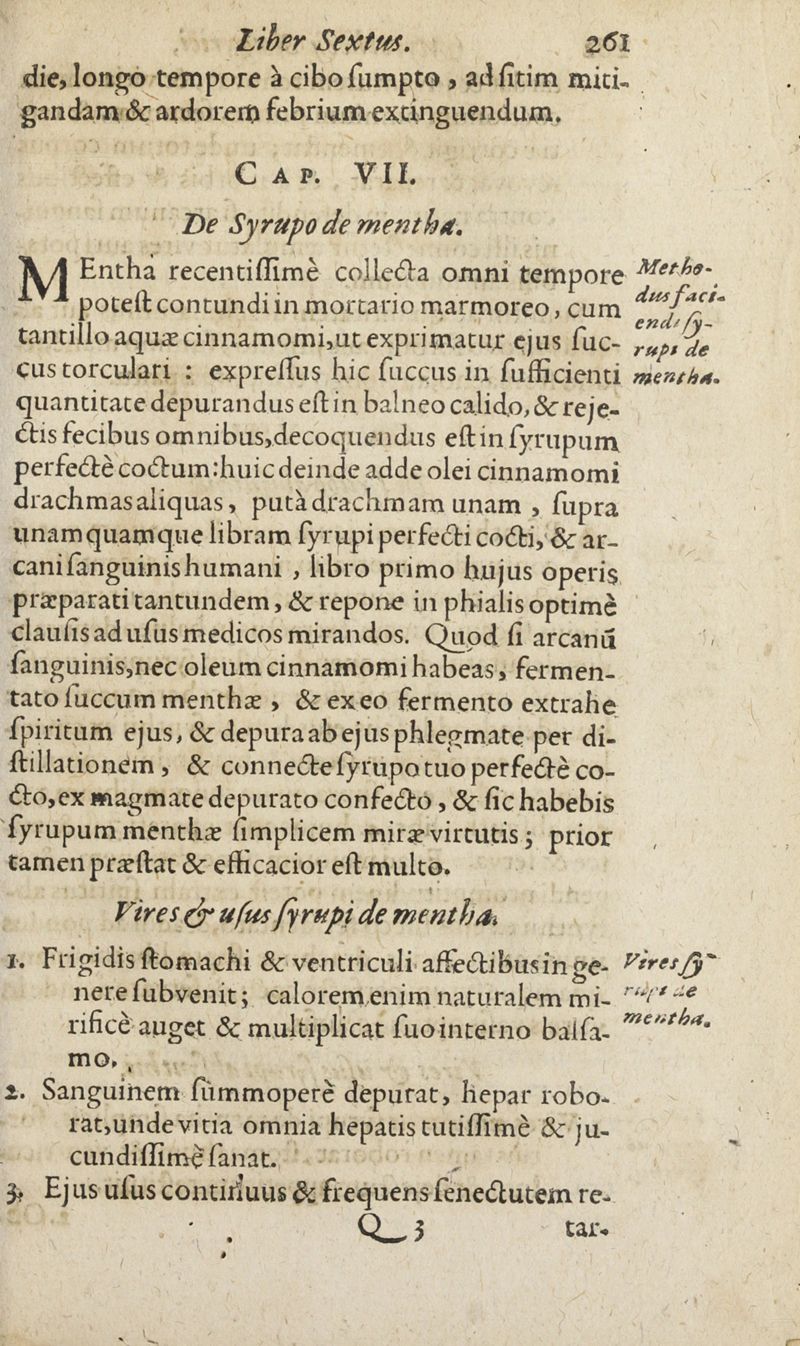 Liber Sextus. 261
die, longo tempore à cibo ſumpto, ad ſitim miti-
gandam & ardorem febrium extinguendum.
CAP. VII.
De Syrupo de mentha.
MEntha recentiſſimè collecta omni tempore
poteſt contundi in mortario marmoreo, cum
tantillo aquæ cinnamomi, ut exprimatur ejus ſuc-
cus torculari : expreſſus hic ſuccus in ſufficienti
quantitate depurandus eſt in balneo calido, & reje-
ctis fecibus omnibus, decoquendus eſt in ſyrupum
perfectè coctum: huic deinde adde olei cinnamomi
drachmas aliquas, putà drachmam unam, ſupra
unamquamque libram ſyrupi perfecti cocti, & ar-
cani ſanguinis humani, libro primo hujus operis
præparati tantundem, & repone in phialis optimè
clauſis ad uſus medicos mirandos. Quod ſi arcanũ
ſanguinis, nec oleum cinnamomi habeas, fermen-
tato ſuccum menthæ, & ex eo fermento extrahe
ſpiritum ejus, & depura ab ejus phlegmate per di-
ſtillationem, & connecte ſyrupo tuo perfectè co-
cto, ex magmate depurato confecto, & ſic habebis
ſyrupum menthæ ſimplicem miræ virtutis; prior
tamen præſtat & efficacior eſt multo.
Metho-
dus faci-
endi ſy-
rupi de
mentha.
Vires & uſus ſyrupi de mentha.
1. Frigidis ſtomachi & ventriculi affectibus in ge-
nere ſubvenit; calorem enim naturalem mi-
rificè auget & multiplicat ſuo interno balſa-
mo.
Vires ſy-
rupi de
mentha.
2. Sanguinem ſummoperè depurat, hepar robo-
rat, unde vitia omnia hepatis tutiſſimè & ju-
cundiſſimè ſanat.
3. Ejus uſus continuus & frequens ſenectutem re-
Q 3 tar-